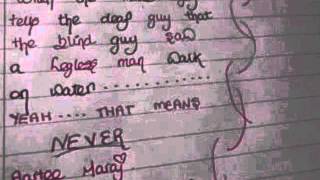 tells the deaf guy that
the blind guy saw
a legless man walk
on water...........
YEAH....THAT MEANS
NEVER